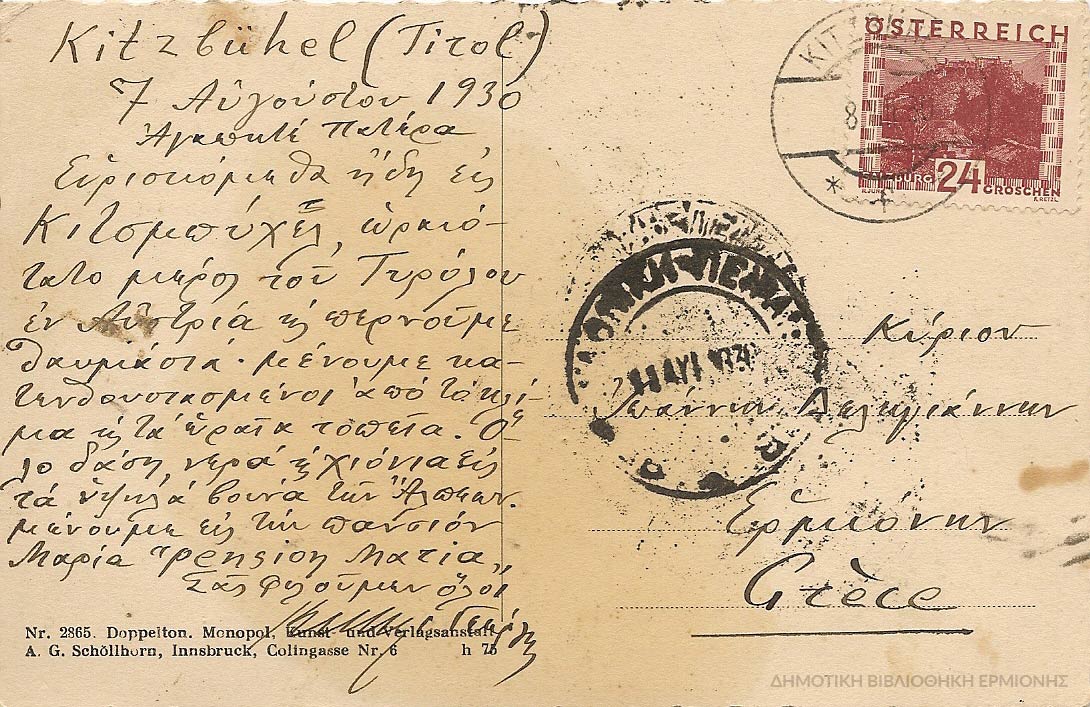 Kitzbühel (Tirol)
7 Αὐγούστου 1930
Ἀγαπητέ Πατέρα
Εὑρισκόμεθα ἤδη εἰς
Κιτσμπύχελ, ὡραιό-
τατο μέρος τοῦ Τυρόλου
ἐν Αὐστρία κ περνοῦμε
θαυμάσια. μένουμε κα-
τενθουσιασμένοι ἀπό τό κλί-
μα κ τά ὡραῖα τοπεῖα. Ὅ-
λο δάση, νερά κ χιόνια εἰς
τά ὑψηλά βουνά τῶν Ἄλπεων.
μένουμε εἰς τήν πανσιόν
Μαρία "Pension Maria„
Σᾶς φιλοῦμεν ὅλοι
Nr. 2865. Doppelton. Monopol, Kunst- und Verlagsanstalt
A. G. Schöllhorn, Innsbruck, Colingasse Nr. 6 h 75
ÖSTERREICH
24
GROSCHEN
R. JUNK
R. RETZL
Κύριον
Ἰωάννην Δεληγιάννην
Ἑρμιόνην
Grèce
ΔΗΜΟΤΙΚΗ ΒΙΒΛΙΟΘΗΚΗ ΕΡΜΙΟΝΗΣ